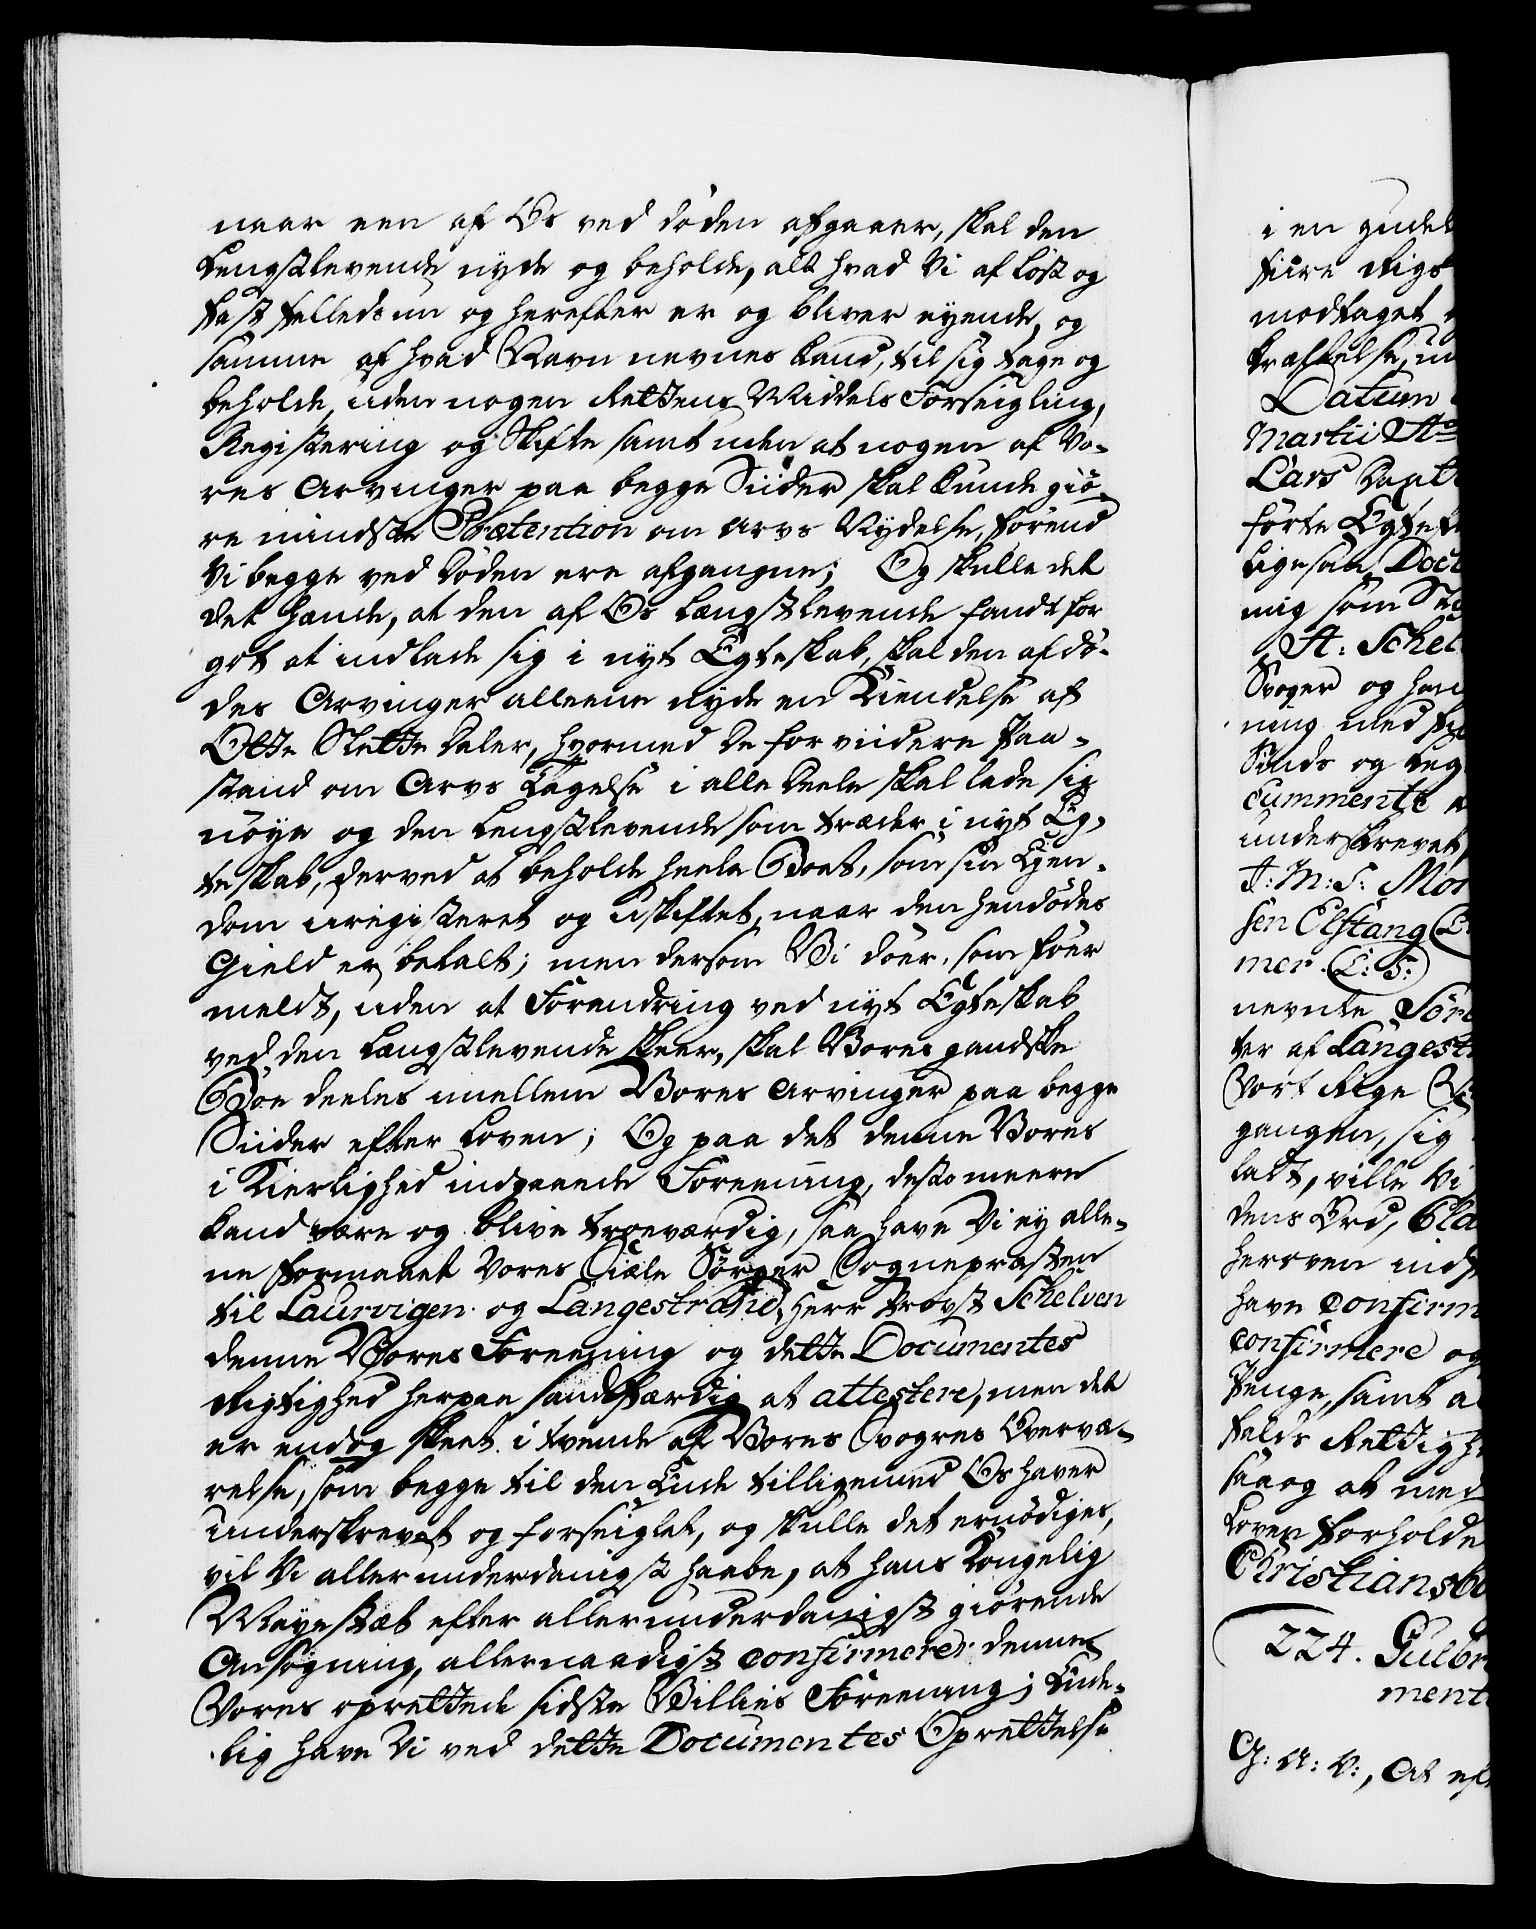 naar een af Os ved döden afgaaer, skal den
Lengstlevende nyde og beholde, alt hvad Vi af Löst og
Fast Felleds nu og herefter er og bliver eyende, og
samme af hvad Navn nevnes kand, til sig tage og
beholde, uden nogen Rettens Middels Forseigling,
Registering og Skifte samt uden at nogen af Vo-
res Arvinger paa begge Siider skal kunde giö-
re mindste Prætention om Arvs Nydelse, förend
Vi begge ved Döden ere afgangne; Og skulle det
det hænde, at den af Os Længstlevende fandt for
got at indlade sig i nyt Egteskab, skal den afdö-
des Arvinger alleene nyde en Kiendelse af
Otte Slette Daler, hvormed De for viidere Paa-
stand om Arvs Tagelse i alle Deele skal lade sig
nöye og den Lengstlevende som træder i nyt Eg-
teskab, derved at beholde heele Boet, som sin Ejen-
dom uregisteret og uskiftet, naar den hendödes
Gield er betalt; men dersom Vi döer, som föer
meldt, uden at Forandring ved nyt Egteskab
ved den Længstlevende skeer, skal Vores gandske
Boe deeles imellem Vores Arvinger paa begge
Siider efter Loven; Og paa det denne Vores
i Kierlighed indgaaede Foreening, desto meere
kand være og blive troeværdig, saa have Vi ey alle-
ne formaaet Vores Siæle Sörger Sognepræsten
til Laurvigen og Langestrand, Herr Provst Schelven
denne Vores Foreening og dette Documentes
Rigtighed herpaa sandfærdig at attestere, men det
er endog skeet i tvende af Vores Svogres Overvæ-
relse, som begge til den Ende tilligemed Os haver
underskrevet og forseiglet, og skulle det ernödiges,
vil Vi allerunderdanigst haabe, at hans Kongelig
Mayestæt efter allerunderdanigst giörende
Ansögning, allernaadigst confirmerer denne
Vores oprettede sidste Villies Foreening; Ende-
lig have Vi ved dette Documentes Oprettelse
i en gudel
fiire Rigs
modtaget
kræftelse, un
Datum
Martii Ao
Lars
förte Egtef
ligesaa Doc
mig som
A: Schel
Svoger og
ning med
Sinds og
cummente
underskrevet,
J: M: S: Mor
sen Elstang
mer. L: S:
nevnte Sör
ter af Langest
Vort Rige
gangen, sig
ladt, ville Vi
dens Ord,
heroven ind
have confirm
confirmere og
Penge, samt a
Falds Rettigh
saa og at med
Loven forholde
Christiansbo
224. Gulbr
ment
G: A: V:, At eft